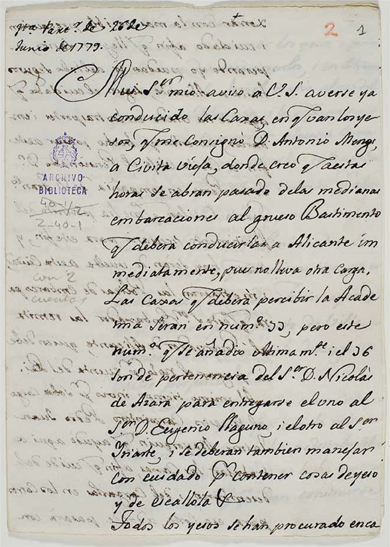 Jta Part.r de 26 de
Junio de 1779.
2 1
Mui S.or mio: aviso a V.S. averse ya
conducido las Caxas, en q.e van los ye
sos, q.e me consignó D. Antonio Mengs,
a Civita Vieja, donde creo q.e a estas
horas se abran pasado de las medianas
embarcaciones al grueso Bastimento
q.e deberá conducirlas a Alicante im
mediatamente, pues no lleva otra carga.
Las Caxas q.e deberá percibir la Acade
mia seran en num.o 33, pero este
num.o q.e se añadió ultimam.te i el 36
son de pertenencia del S.or D. Nicolás
de Azara para entregarse el uno al
S.or D. Eugenio Llaguno, i el otro al S.or
Iriarte, i se deberan tambien manejar
con cuidado p.r contener cosas de yeso
y de Scallola.
Todos los yesos se han procurado enca
ARCHIVO
BIBLIOTECA
40-1/2
2-40-1
con 2